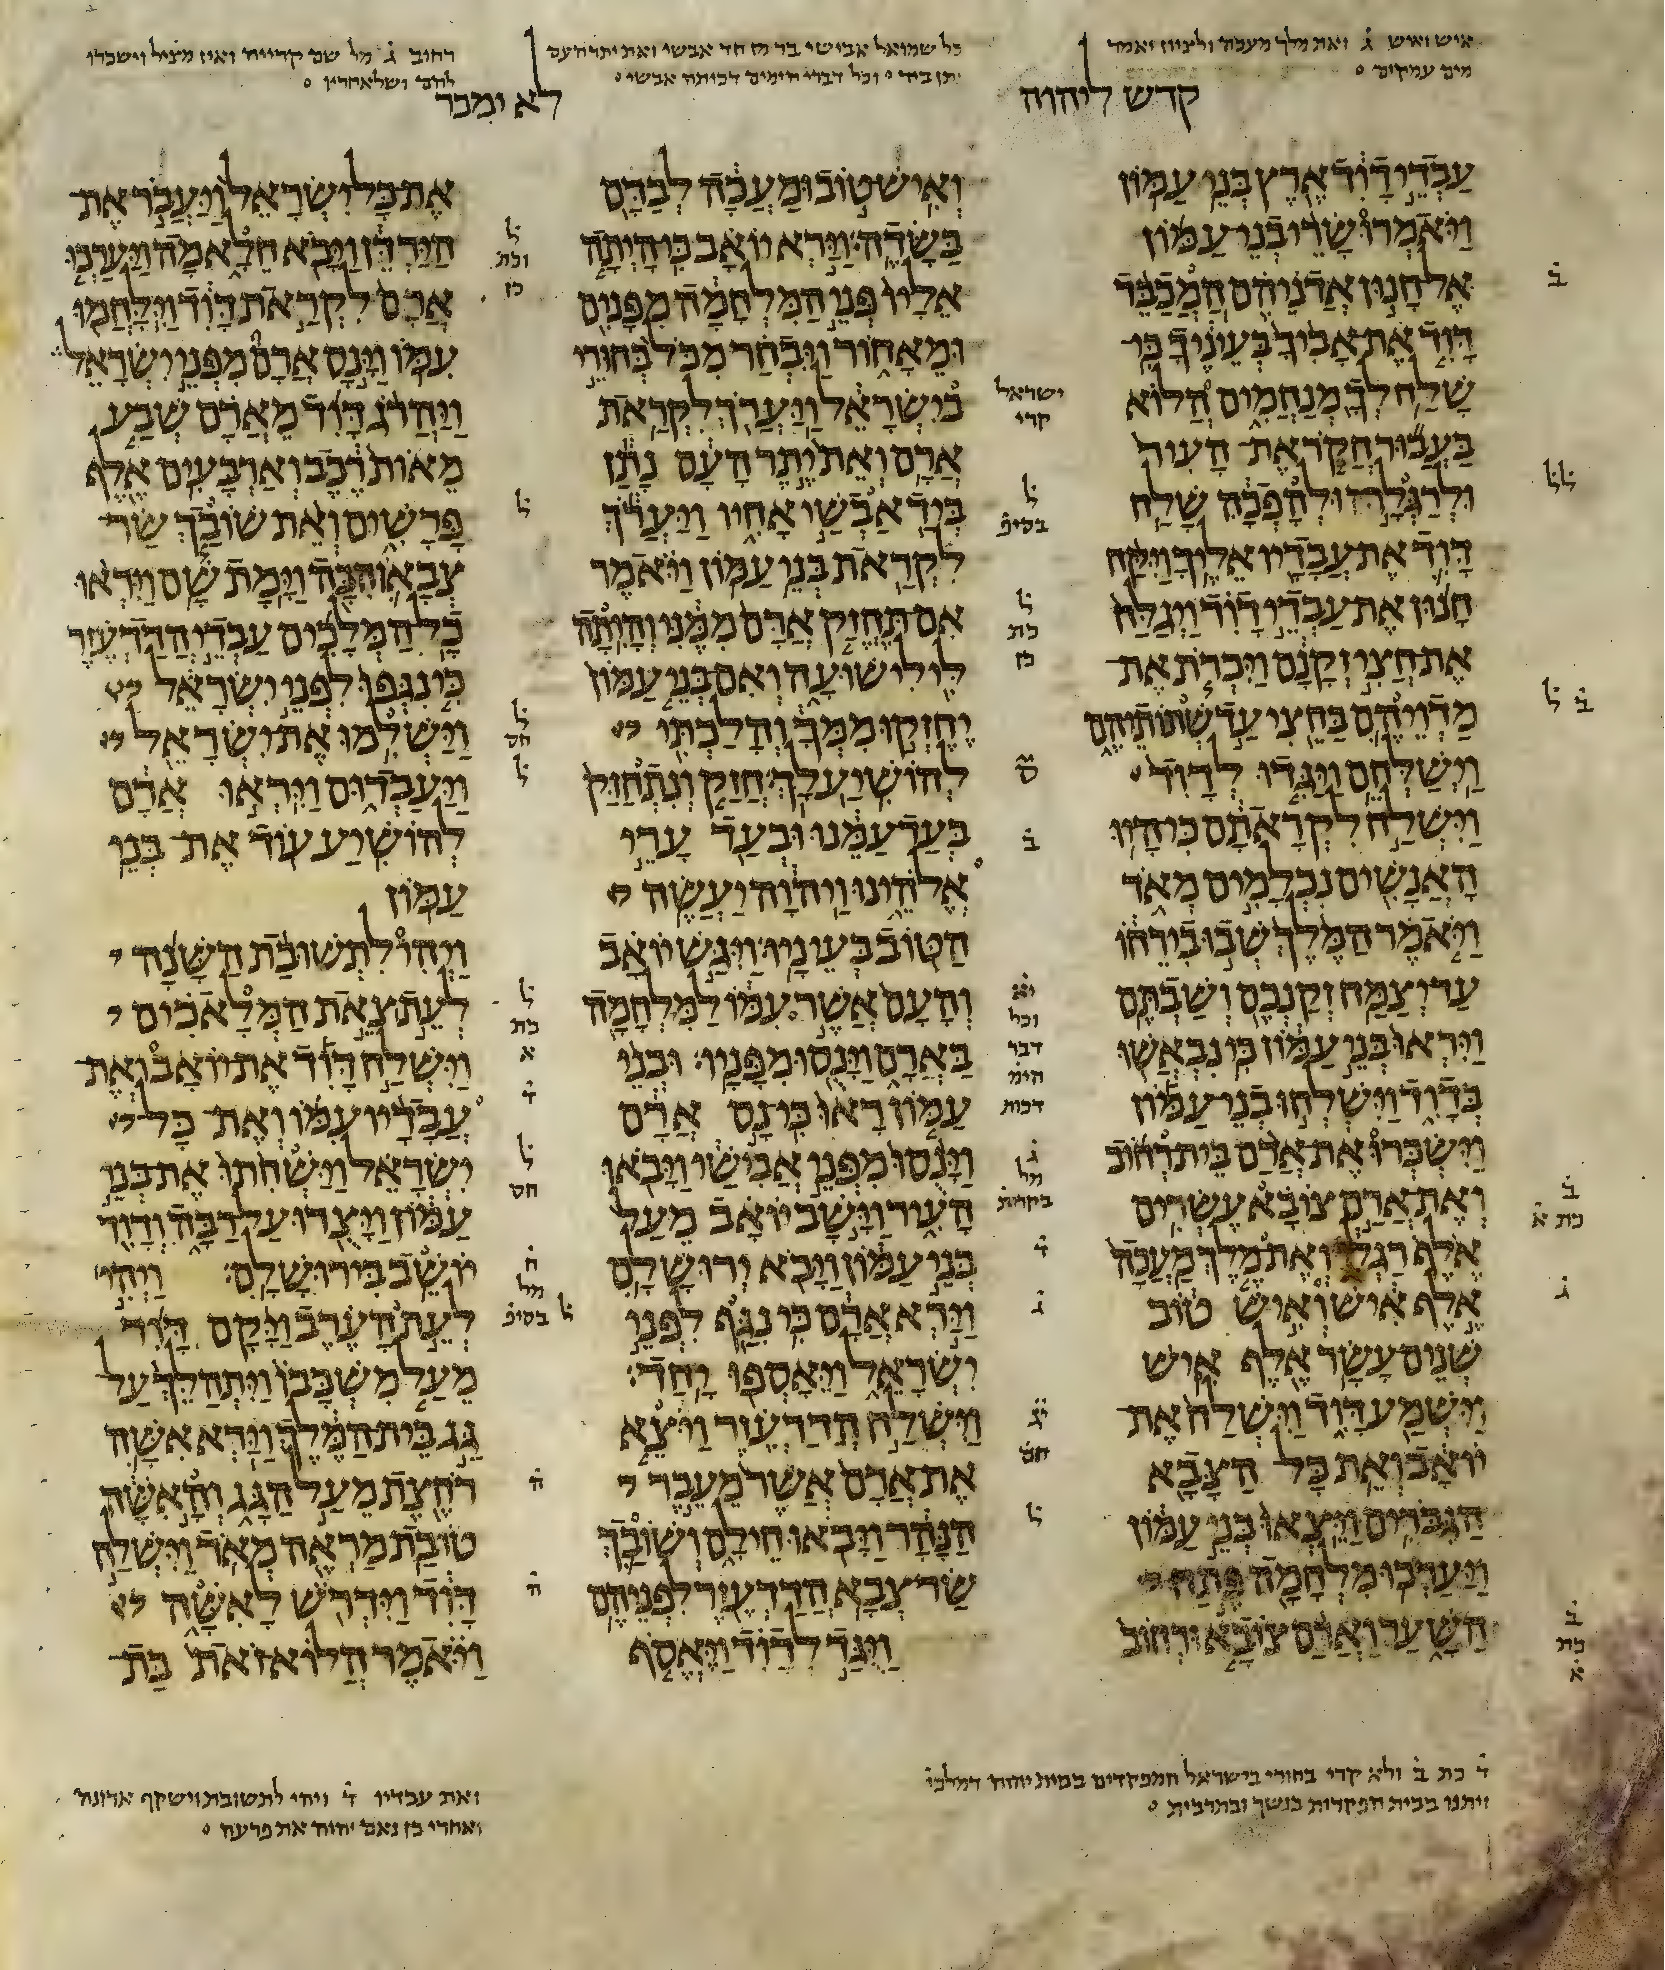 איש ואיש ג ואת מלך מעכה ולציון יאמר
מים עמקים
כל שמואל אבישי בר מן חד אבשי ואת יתר העם
נתן ביד וכל דברי הימים דכותה אבשי
רחוב ג מל שם קרייה ואין מציל וישכרו
להם ושלאחריו
קדש ליהוה
לא ימכר
עבדי דוד ארץ בני עמון
ויאמרו שרי בני עמון
אל חנון אדניהם המכבד
דוד את אביך בעיניך כי
שלח לך מנחמים הלוא
בעבור חקר את העיר
ולרגלה ולהפכה שלח
דוד את עבדיו אליך ויקח
חנון את עבדי דוד ויגלח
את חצי זקנם ויכרת את
מדויהם בחצי עד שתותיהם
וישלחם ויגדו לדוד
וישלח לקראתם כי היו
האנשים נכלמים מאד
ויאמר המלך שבו בירחו
עד יצמח זקנכם ושבתם
ויראו בני עמון כי נבאשו
בדוד וישלחו בני עמון
וישכרו את ארם בית רחוב
ואת ארם צובא עשרים
אלף רגלי ואת מלך מעכה
אלף איש ואיש טוב
שנים עשר אלף איש
וישמע דוד וישלח את
יואב ואת כל הצבא
הגברים ויצאו בני עמון
ויערכו מלחמה פתח
השער וארם צובא ורחוב
ואיש טוב ומעכה לבדם
בשדה וירא יואב כי היתה
אליו פני המלחמה מפנים
ומאחור ויבחר מכל בחורי
בישראל ויערך לקראת
ארם ואת יתר העם נתן
ביד אבשי אחיו ויערך
לקראת בני עמון ויאמר
אם תחזק ארם ממני והיתה
לי לישועה ואם בני עמון
יחזקו ממך והלכתי
להושיע לך חזק ונתחזק
בעד עמנו ובעד ערי
אלהינו ויהוה יעשה
הטוב בעיניו ויגש יואב
והעם אשר עמו למלחמה
בארם וינסו מפניו ובני
עמון ראו כי נס ארם
וינסו מפני אבישי ויבאו
העיר וישב יואב מעל
בני עמון ויבא ירושלם
וירא ארם כי נגף לפני
ישראל ויאספו יחד
וישלח הדדעזר ויצא
את ארם אשר מעבר
הנהר ויבאו חילם ושובך
שר צבא הדדעזר לפניהם
ויגד לדוד ויאסף
את כל ישראל ויעבר את
הירדן ויבא חלאמה ויערכו
ארם לקראת דוד וילחמו
עמו וינס ארם מפני ישראל
ויהרג דוד מארם שבע
מאות רכב וארבעים אלף
פרשים ואת שובך שר
צבאו הכה וימת שם ויראו
כל המלכים עבדי הדדעזר
כי נגפו לפני ישראל
וישלמו את ישראל
ויעבדום ויראו ארם
להושיע עוד את בני
עמון
ויהי לתשובת השנה
לעת צאת המלאכים
וישלח דוד את יואב ואת
עבדיו עמו ואת כל
ישראל וישחתו את בני
עמון ויצרו על רבה ודוד
יושב בירושלם ויהי
לעת הערב ויקם דוד
מעל משכבו ויתהלך על
גג בית המלך וירא אשה
רחצת מעל הגג והאשה
טובת מראה מאד וישלח
דוד וידרש לאשה
ויאמר הלוא זאת בת
ב
לל
ב ל
ב
כת א
ג
ב
כת
א
ישראל
קרי
ל
בסיפ
ל
כת
כן
ב
יא
וכל
דבר
הימ
דכות
ג
מל
בקריה
ד
ג
יג
חס
ל
ל
וכת
כן
ל
ל
חס
ל
ל
כת
א
ד
ל
חס
ח
מל
ל בסיפ
ה
ה
ד כת ב ולא קרי בחורי בישראל המפקדים בבית יהוה דמלכי
ויתנו בבית הפקדות בנשך ובתרבית
ואת עבדיו ד ויהי לתשובת וישקף ארונה
ואחרי כן נאם יהוה את פרעה